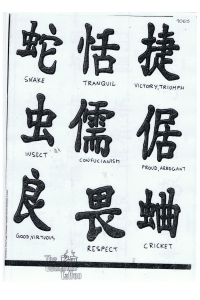 蛇 恬 捷
SNAKE TRANQUIL VICTORY, TRIUMPH
虫 儒 倨
INSECT CONFUCIANISM PROUD, ARROGANT
良 畏 蛐
GOOD, VIRTUOUS RESPECT CRICKET